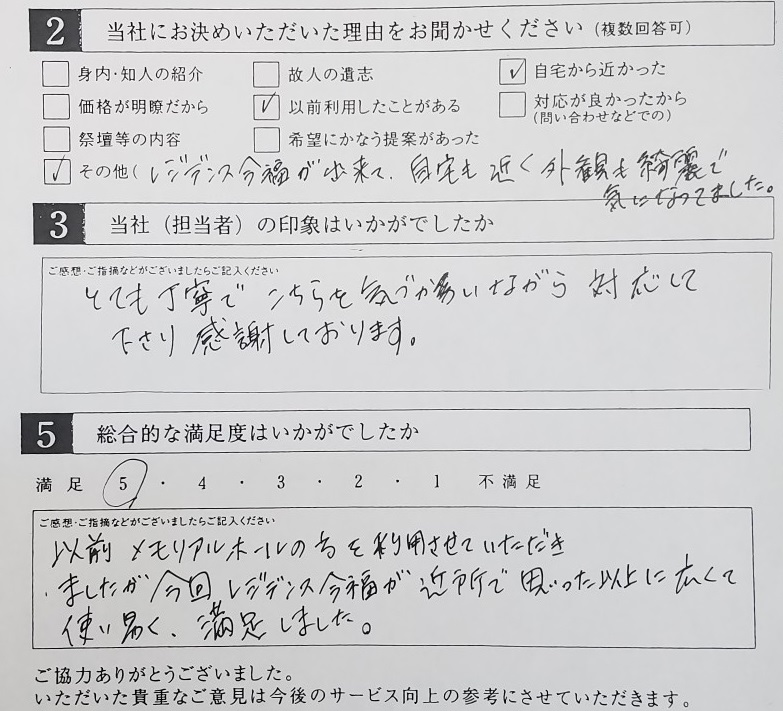 2 当社にお決めいただいた理由をお聞かせください(複数回答可)
身内・知人の紹介 故人の遺志 ✓ 自宅から近かった
価格が明瞭だから ✓ 以前利用したことがある 対応が良かったから
(問い合わせなどでの)
祭壇等の内容 希望にかなう提案があった
✓ その他( レジデンス今福が出来て、自宅も近く外観も綺麗で
気になってました。
3 当社(担当者)の印象はいかがでしたか
ご感想・ご指摘などがございましたらご記入ください
とても丁寧でこちらを気づかいながら対応して
下さり感謝しております。
5 総合的な満足度はいかがでしたか
満足 5・4・3・2・1 不満足
ご感想・ご指摘などがございましたらご記入ください
以前メモリアルホールの方を利用させていただき
ましたが今回レジデンス今福が近所で思った以上に広くて
使い易く、満足しました。
ご協力ありがとうございました。
いただいた貴重なご意見は今後のサービス向上の参考にさせていただきます。